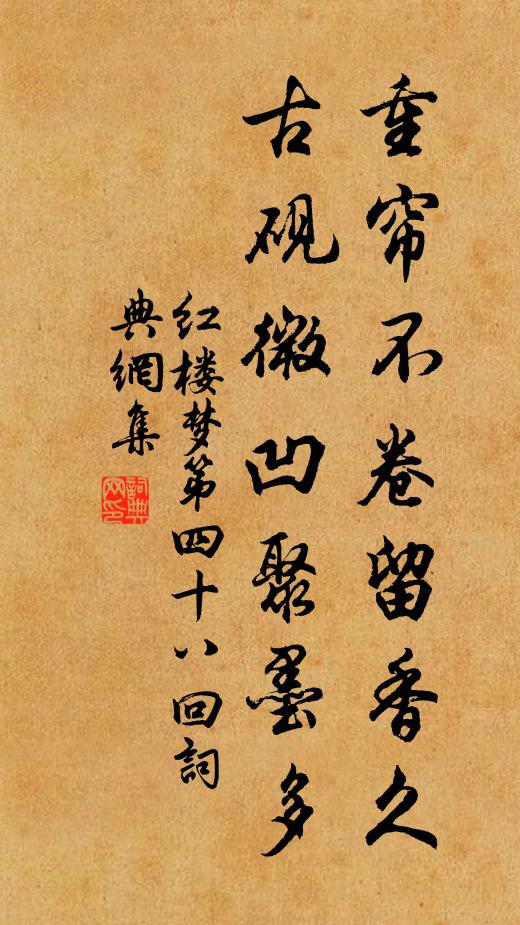 重帘不卷留香久
古砚微凹聚墨多
红楼梦第四十八回詞
典網集
詞典
网印